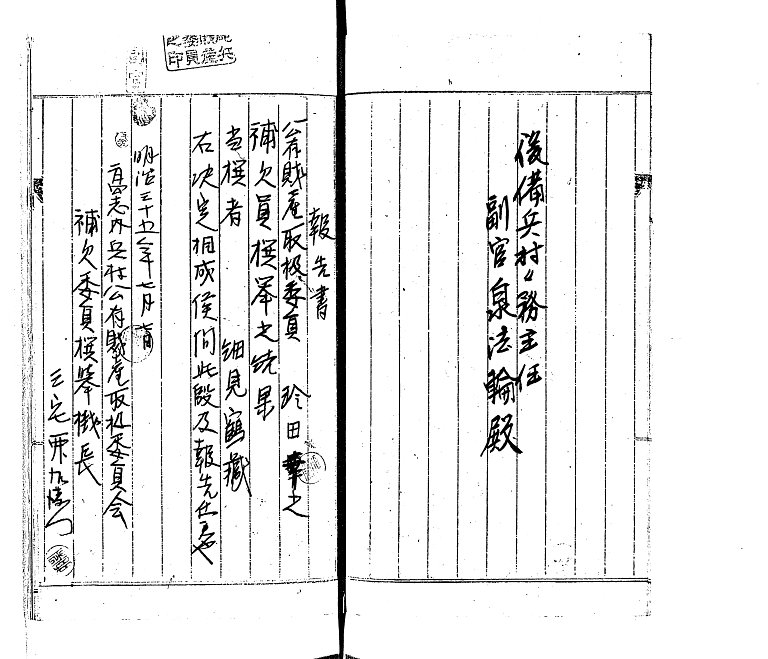 後備兵村々務主任
副官泉法輪殿
報告書
公有財産取扱委員 田幸之
補欠員撰挙之結果
当撰者 細見鶴蔵
右決定相成候間此段及報告仕候也
明治三十五年七月
高志内兵村公有財産取扱委員会
補欠委員撰挙長
三宅